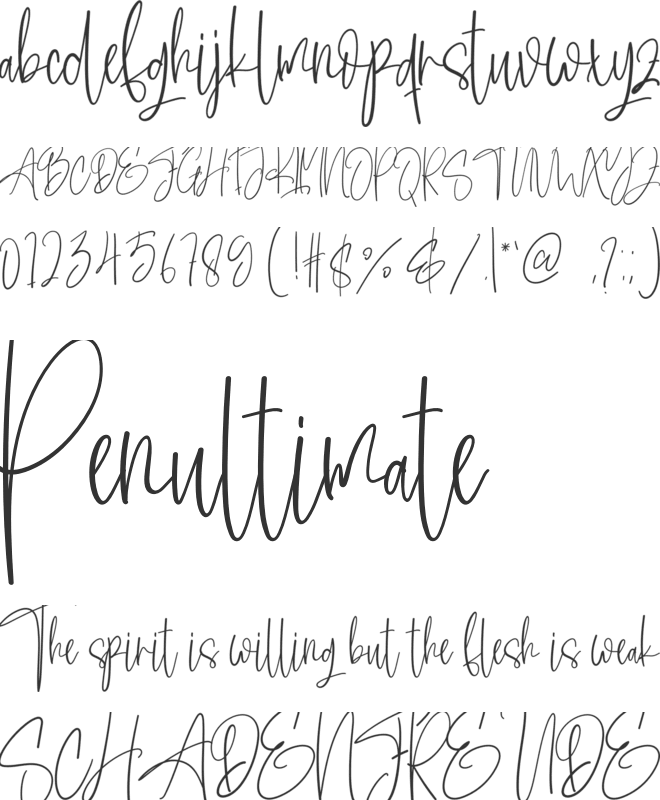 abcdefghijklmnopqrstuvwxyz
ABCDEFGHIJKLMNOPQRSTUVWXYZ
0123456789(!#$%&/.|*'@,?:;)
Penultimate
The spirit is willing but the flesh is weak
SCHADENFREUDE